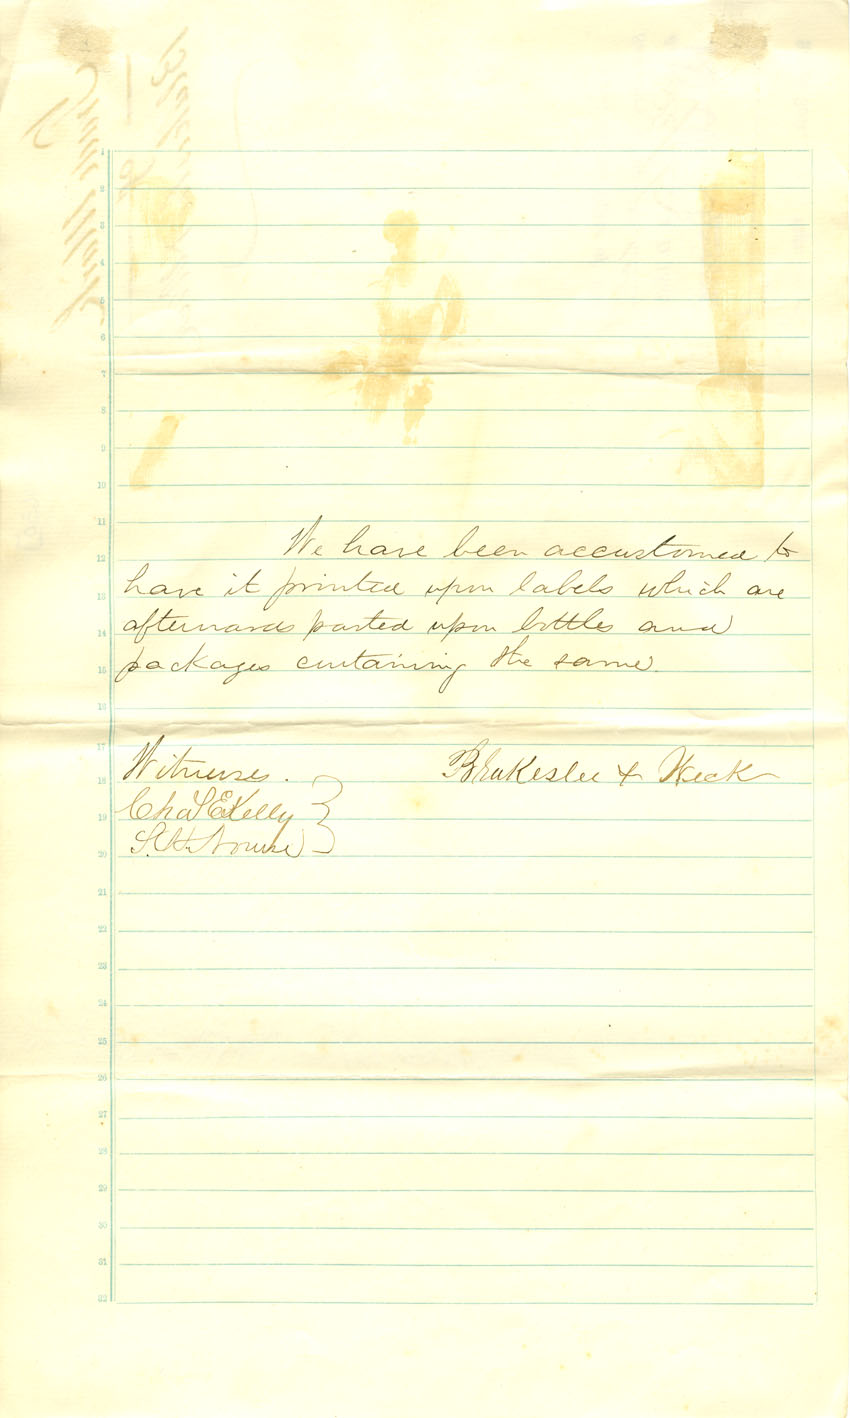 We have been accustomed to
have it printed upon labels which are
afterwards pasted upon bottles and
packages containing the same.
Witnesses.
Blakeslee &
Chas E Kelly
S. H. Nourse
1
2
3
4
5
6
7
8
9
10
11
12
13
14
15
16
17
18
19
20
21
22
23
24
25
26
27
28
29
30
31
32